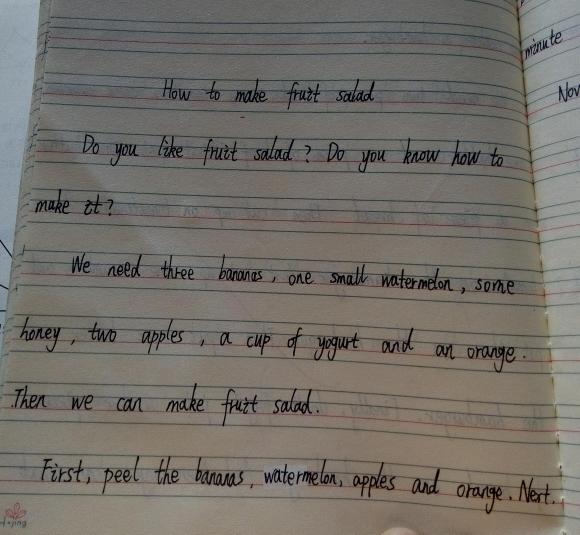 How to make fruit salad
Do you like fruit salad? Do you know how to
make it?
We need three bananas, one small watermelon, some
honey, two apples, a cup of yogurt and an orange.
Then we can make fruit salad.
First, peel the bananas, watermelon, apples and orange. Next,
minute
Nov